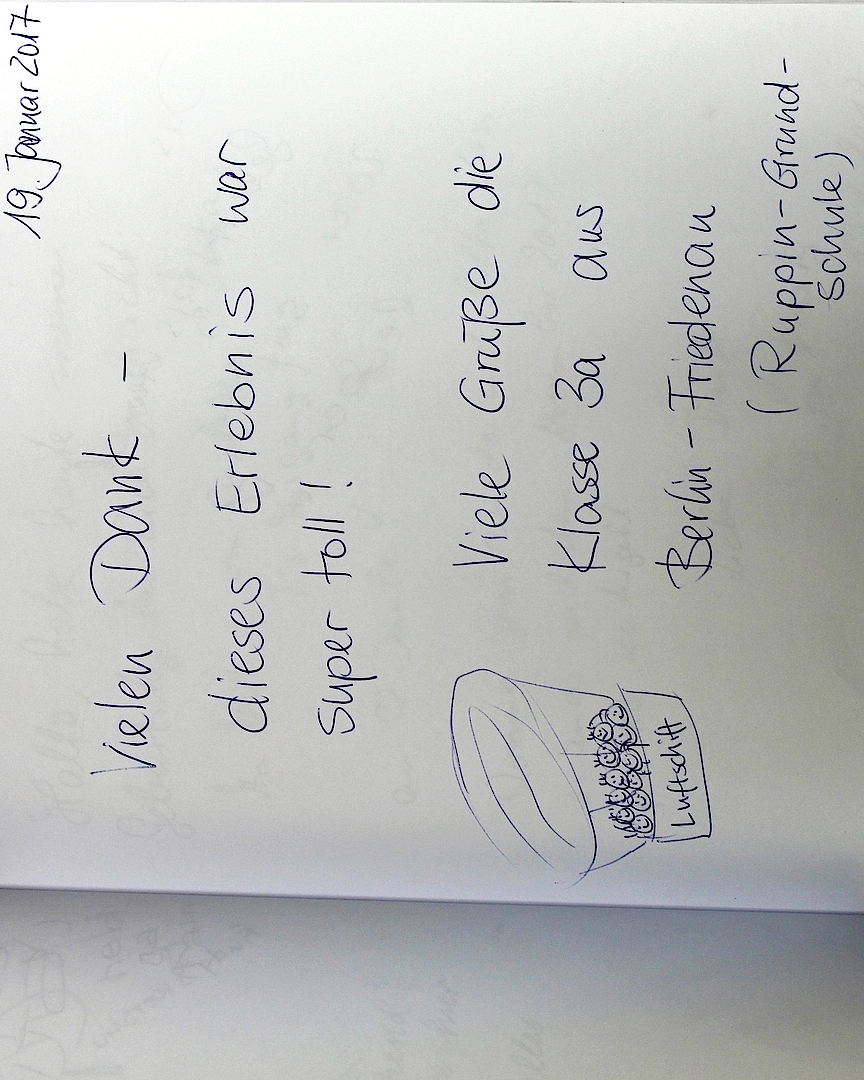 19. Januar 2017
Vielen Dank –
dieses Erlebnis war
super toll!
Viele Grüße die
Klasse 3a aus
Berlin-Friedenau
(Ruppin-Grund-
schule)
Luftschiff